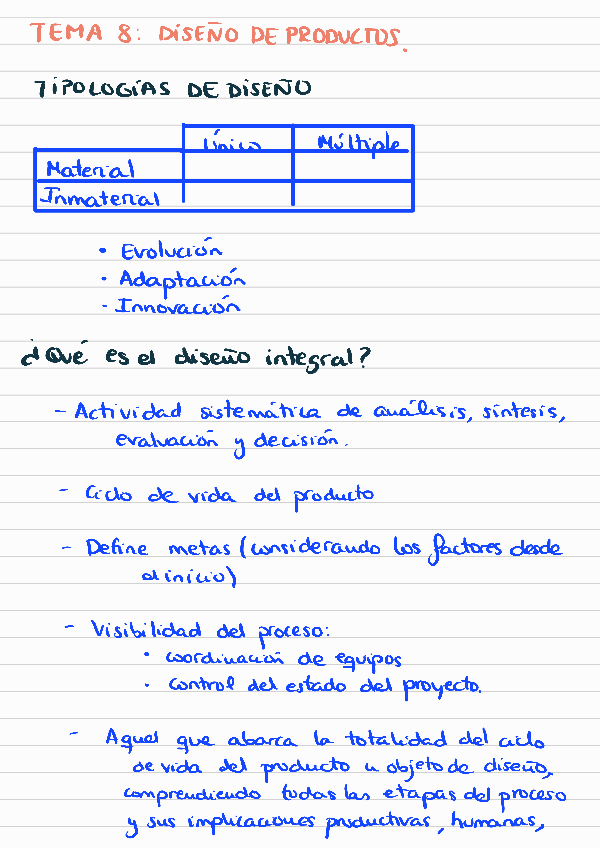 TEMA 8: DISEÑO DE PRODUCTOS.
TIPOLOGÍAS DE DISEÑO
Único Múltiple
Material
Inmaterial
• Evolución
• Adaptación
• Innovación
¿Qué es el diseño integral?
- Actividad sistemática de análisis, síntesis,
evaluación y decisión.
- Ciclo de vida del producto
- Define metas (considerando los factores desde
el inicio)
- Visibilidad del proceso:
• coordinación de equipos
• control del estado del proyecto.
- Aquel que abarca la totalidad del ciclo
de vida del producto u objeto de diseño,
comprendiendo todas las etapas del proceso
y sus implicaciones productivas, humanas,